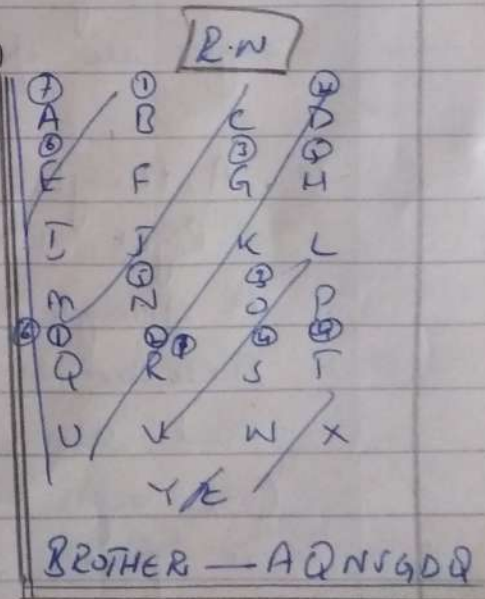 R.N
⑦ ①
A B C D
⑥ ③
E F G H
I J K L
⑤
M N O P
Q R S T
U V W X
Y Z
BROTHER — AQNSGDQ